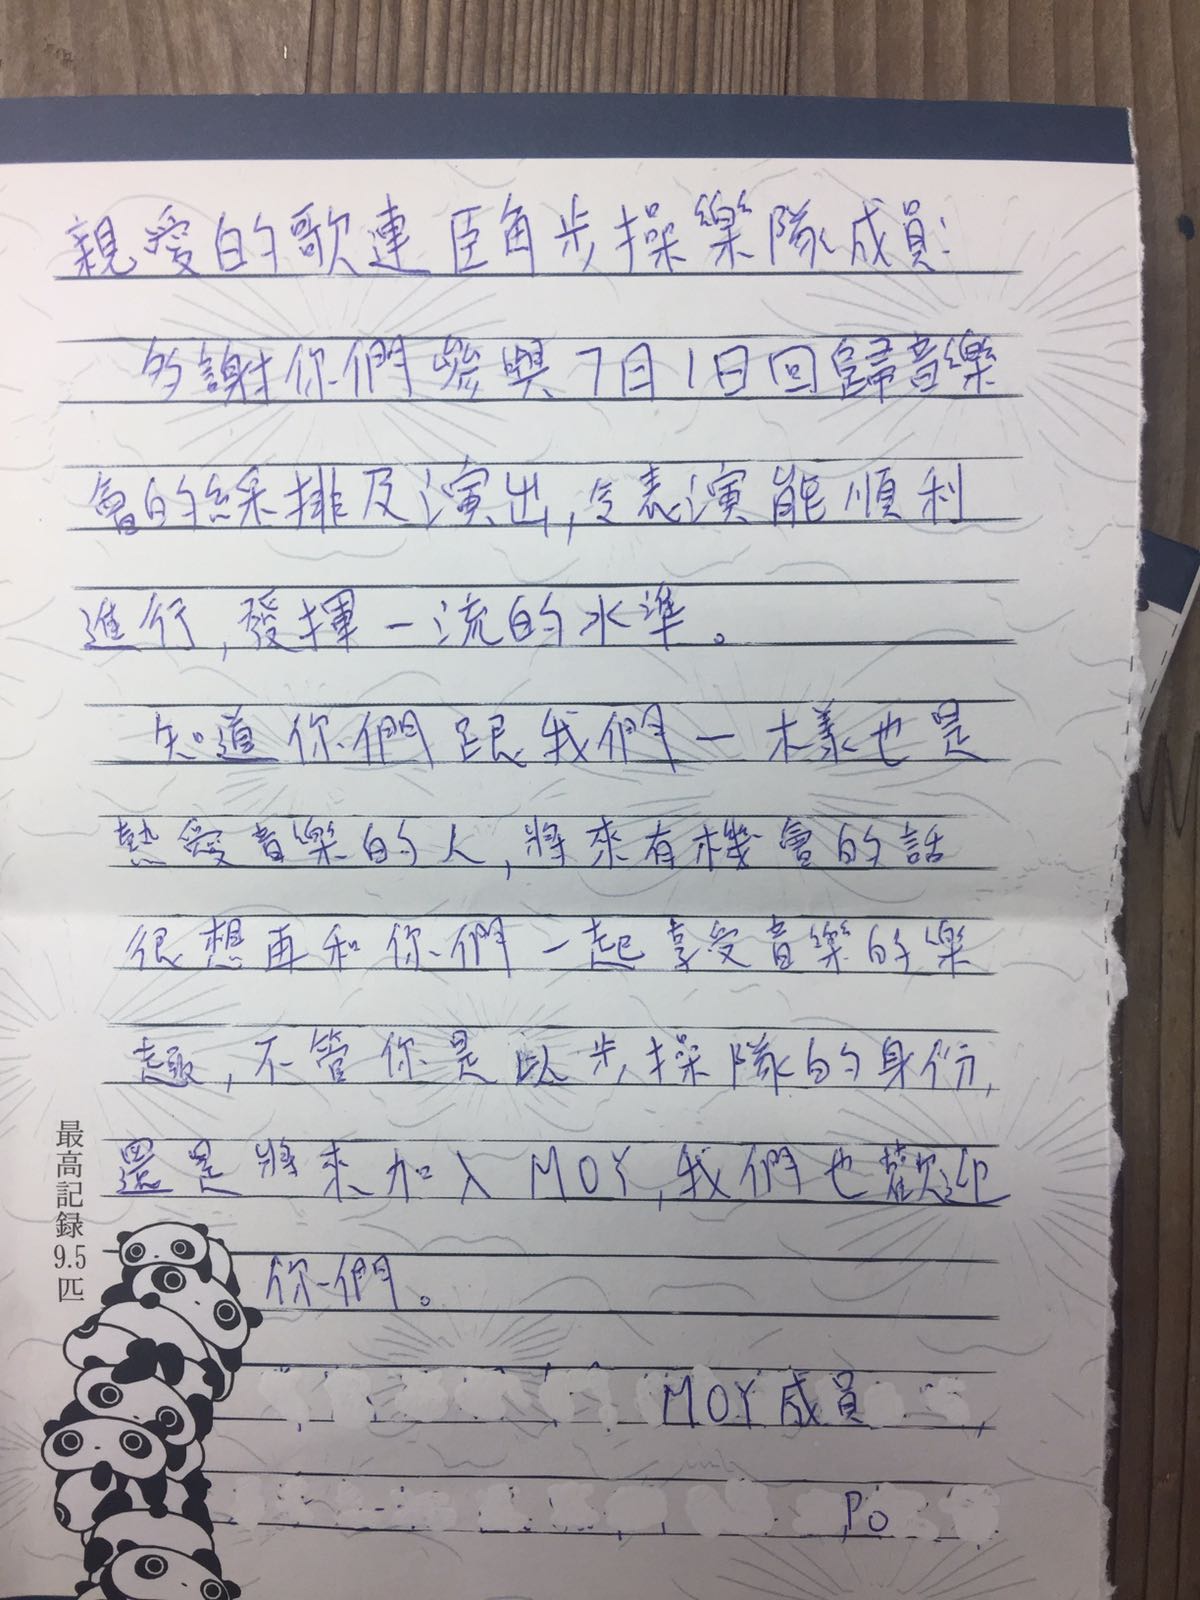 親愛的歌連臣角步操樂隊成員:
多謝你們參與7月1日回歸音樂
會的綵排及演出,令表演能順利
進行,發揮一流的水準。
知道你們跟我們一樣也是
熱愛音樂的人,將來有機會的話
很想再和你們一起享受音樂的樂
趣,不管你是以步操隊的身份,
還是將來加入MOY,我們也歡迎
你們。
MOY成員
Po
最高記録9.5匹